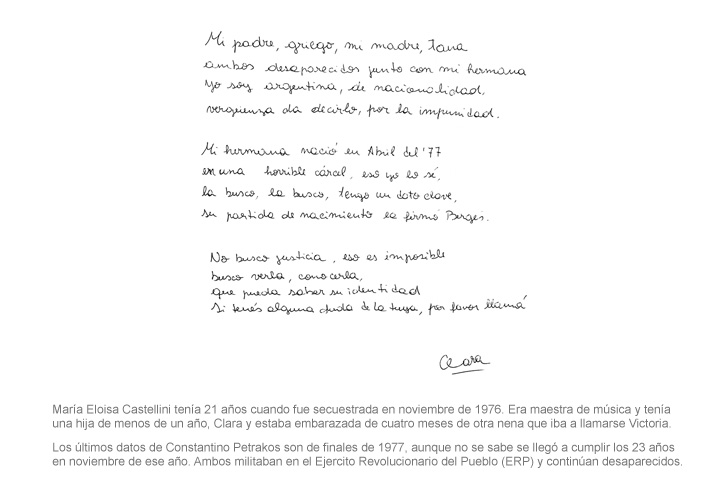 Mi padre, griego, mi madre, tana
ambos desaparecidos junto con mi hermana
yo soy argentina, de nacionalidad,
vergüenza da decirlo, por la impunidad.
Mi hermana nació en Abril del '77
en una horrible cárcel, eso yo lo sé,
la busco, la busco, tengo un dato clave,
su partida de nacimiento la firmó Bergés.
No busco justicia, eso es imposible
busco verla, conocerla,
que pueda saber su identidad
Si tenés alguna duda de la tuya, por favor llamá
Clara
María Eloisa Castellini tenía 21 años cuando fue secuestrada en noviembre de 1976. Era maestra de música y tenía
una hija de menos de un año, Clara y estaba embarazada de cuatro meses de otra nena que iba a llamarse Victoria.
Los últimos datos de Constantino Petrakos son de finales de 1977, aunque no se sabe se llegó a cumplir los 23 años
en noviembre de ese año. Ambos militaban en el Ejercito Revolucionario del Pueblo (ERP) y continúan desaparecidos.